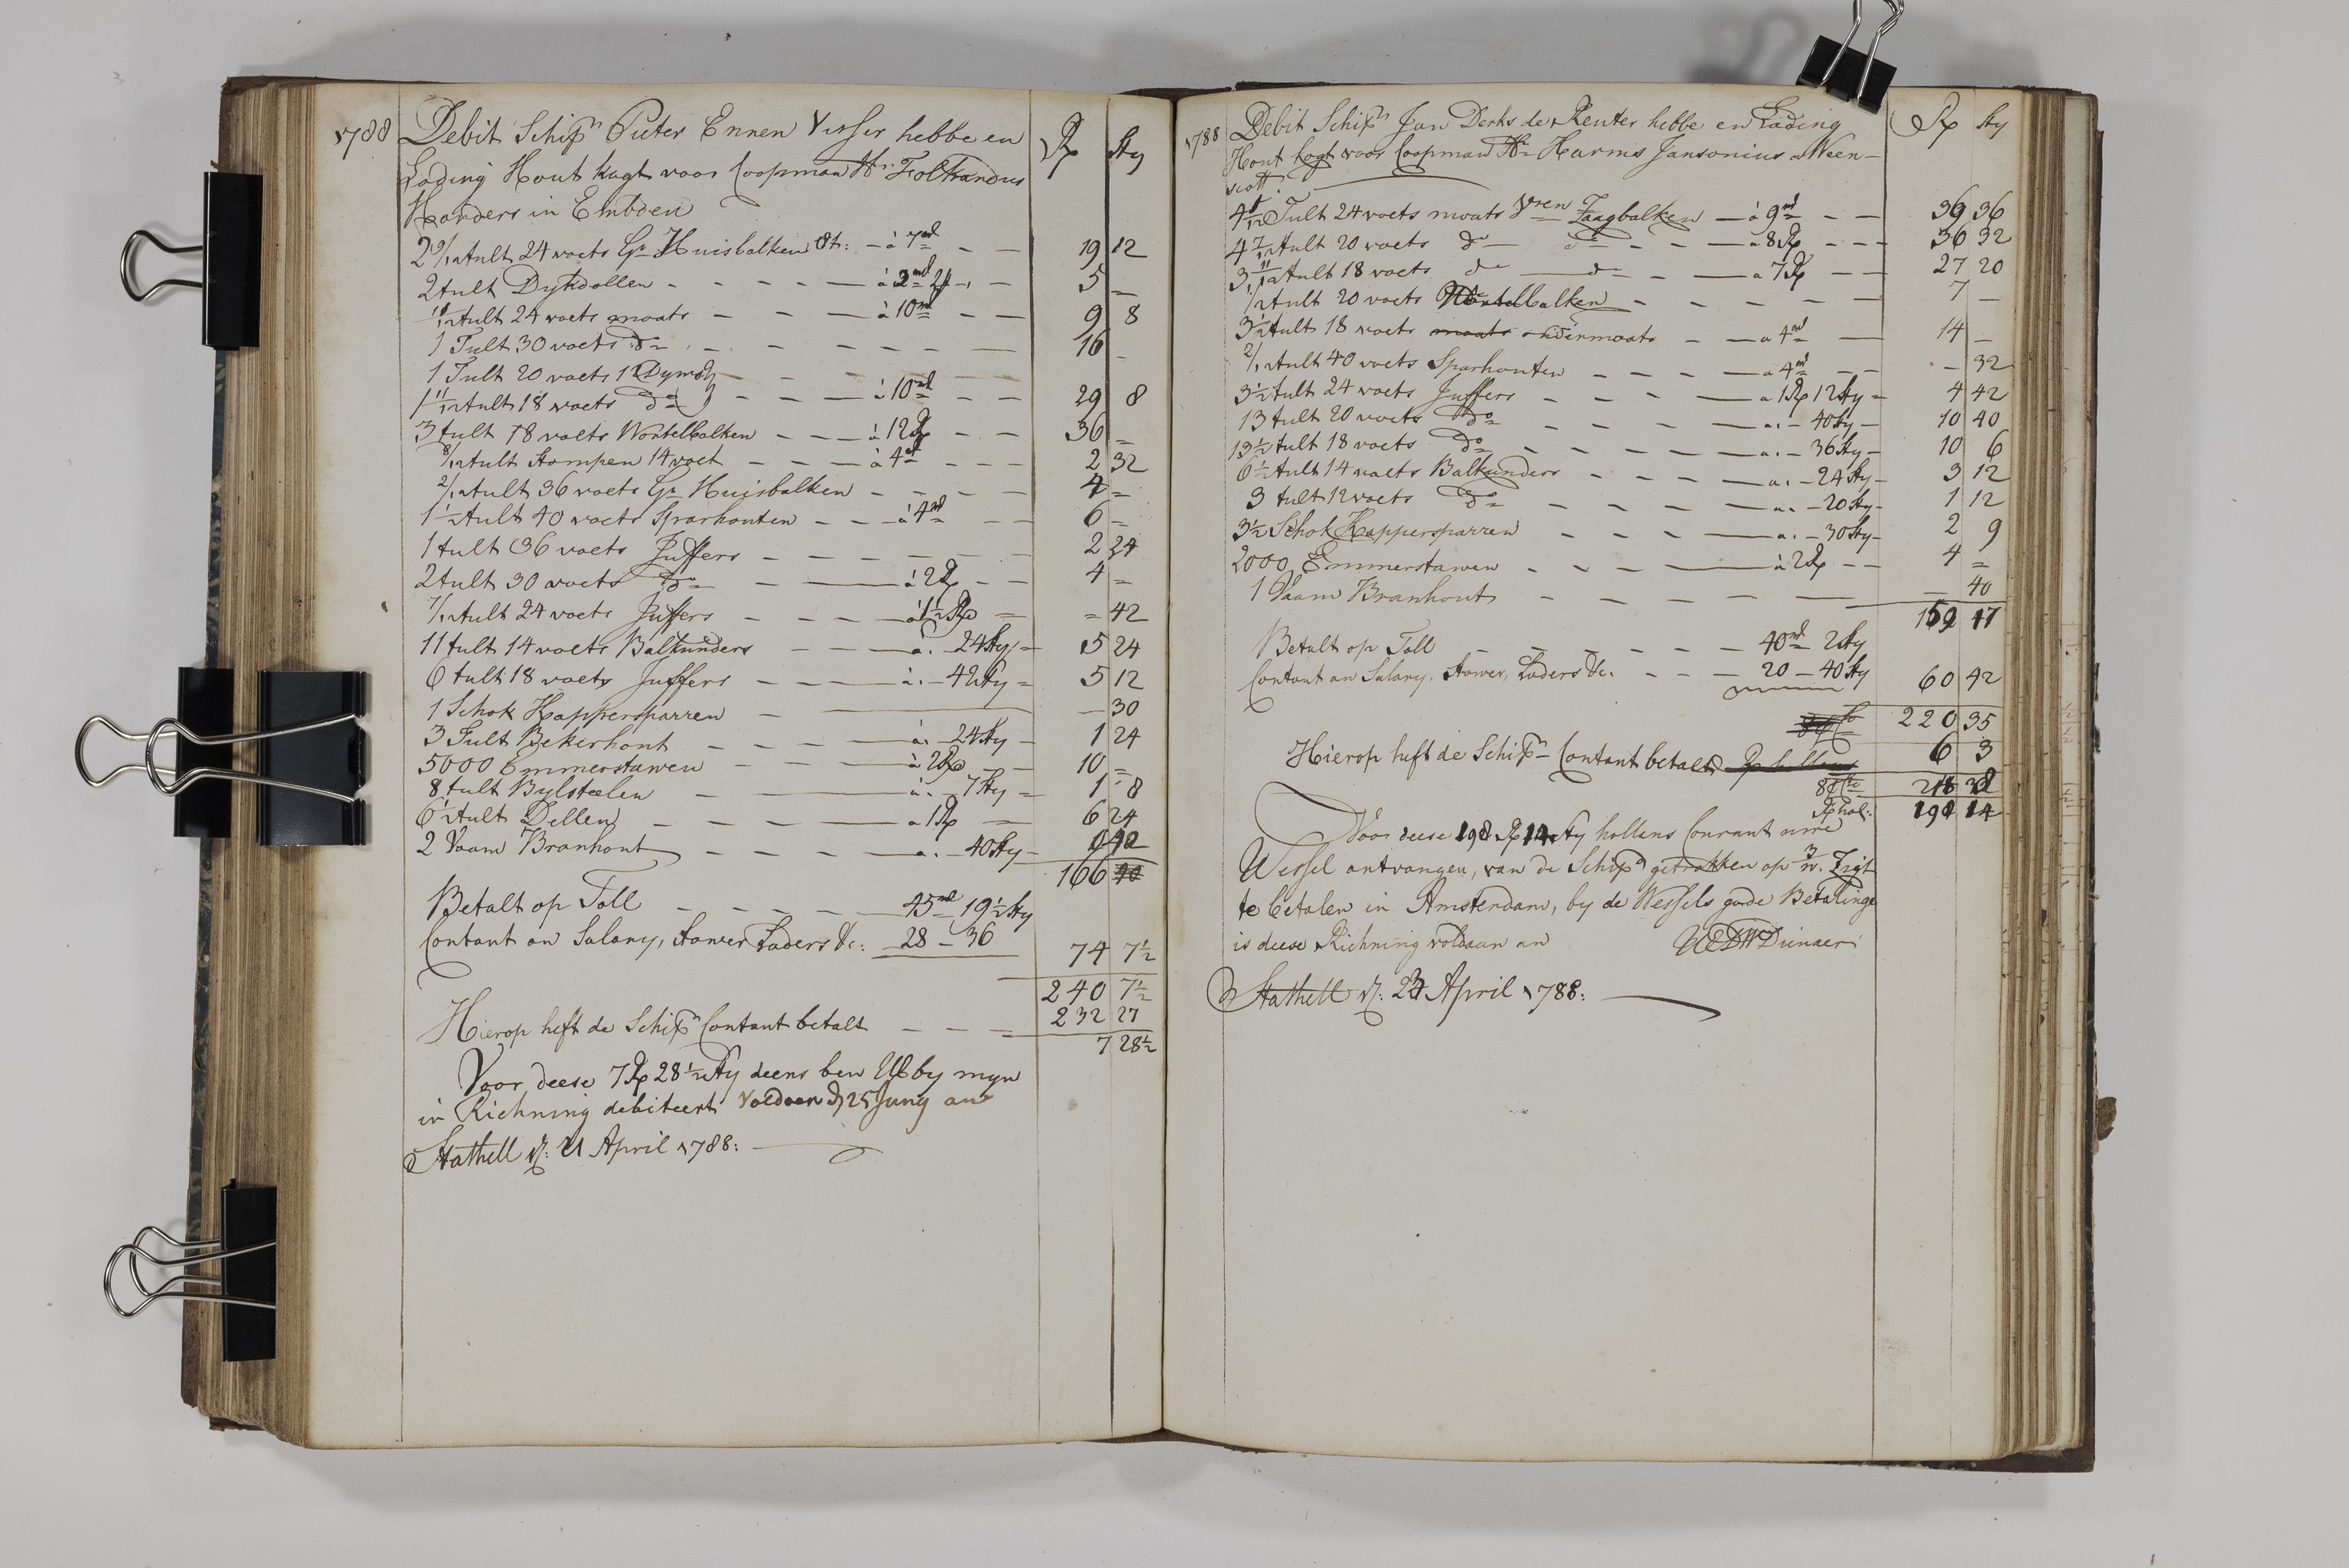 1788 Debit Schipr Pieter Ennen Visser hebbe en Rx Sty
Lading Hout kogt voor Coopman Hr. Folkandus
Harders in Embden
2 9/12 tult 24 voets Gr Huisbalken à 7rd 19 12
2 tult Dykdollen - à 2rd 24 5 -
11/12 tult 24 voets moats - à 10rd 9 8
1 Tult 30 voets do 16 -
1 Tult 20 voets 12 Dyms
1 11/12 tult 18 voets do - à 10rd 29 8
3 tult 18 voets Wortelbalken - à 12 Rx 36 -
8/12 tult Stompen 14 voet - à 4rd 2 32
2/12 tult 36 voets Gr Huisbalken - 4 =
1 1/2 tult 40 voets Sparhouten - à 4rd 6 =
1 tult 36 voets Juffers - 2 24
2 tult 30 voets do - à 2 Rx 4 =
7/12 tult 24 voets Juffers - à 1 1/2 Rx = 42
11 tult 14 voets Balkunders - a. - 24 Sty 5 24
6 tult 18 voets Juffers - à. - 42 Sty 5 12
1 Schok Kappersparren - 30
3 Tult Bekerhout - à. 24 Sty 1 24
5000 Emmerstawen - à 2 Rx 10 =
8 tult Bylsteelen - a. - 7 Sty 1 8
6 1/2 tult Dellen - a 1 Rx 6 24
2 Vaam Branhout - a. - 40 Sty
166
Betalt op Toll - 45rd 19 1/2 Sty
Contant an Salary, Stower Laders &c: 28 - 36 74 7 1/2
240 7 1/2
Hierop heft de Schipr Contant betalt - 232 27
7 28 1/2
Voor deese 7 Rx 28 1/2 Sty deens ben UE by myn
in Richning debiteert Voldoan d 25 Juny an
Stathell d: 21 April 1788:
1788 Debit Schipr Jan Derks de Reuter hebbe en Lading Rx Sty
Hout kogt voor Coopman Hr Harms Jansonius Ween-
scott
Tult 24 voets moats Zaagbalken - à 9rd 36 36
4 7/12 tult 20 voets do do - a 8 Rx 36 32
3 11/12 tult 18 voets do do - a 7 Rx 27 20
1/2 tult 20 voets Wortelbalken - 7 -
3 1/2 tult 18 voets moats undermoats - a 4rd 14 -
2/12 tult 40 voets Sparhouten - a 4rd - 32
3 1/2 tult 24 voets Juffers - a 1 Rx 12 Sty 4 42
13 tult 20 voets do - a. - 40 Sty 10 40
13 1/2 tult 18 voets do - a. - 36 Sty 10 6
6 1/2 tult 14 voets Balkunders - a. - 24 Sty 3 12
3 tult 12 voets do - a. - 20 Sty 1 12
3 1/2 Schok Kappersparren - a. - 30 Sty 2 9
2000 Emmerstawen - à 2 Rx 4 =
1 Vaam Branhout - 40
159 47
Betalt op Toll - 40rd 2 Sty
Contant an Salary, Stower, Laders &c. - 20 - 40 Sty 60 42
220 35
Hierop heft de Schipr Contant betalt 6 3
Rx hol: 198 14
Voor deese 198 Rx 14 Sty hollens Courant
Wessel ontvangen, van de Schipr getrokken op 3 w. Zigt
te betalen in Amsterdam, by de Wessels goede Betalinge
is deese Richning voldaan an UEDW Dienaer
Stathell d: 23 April 1788: